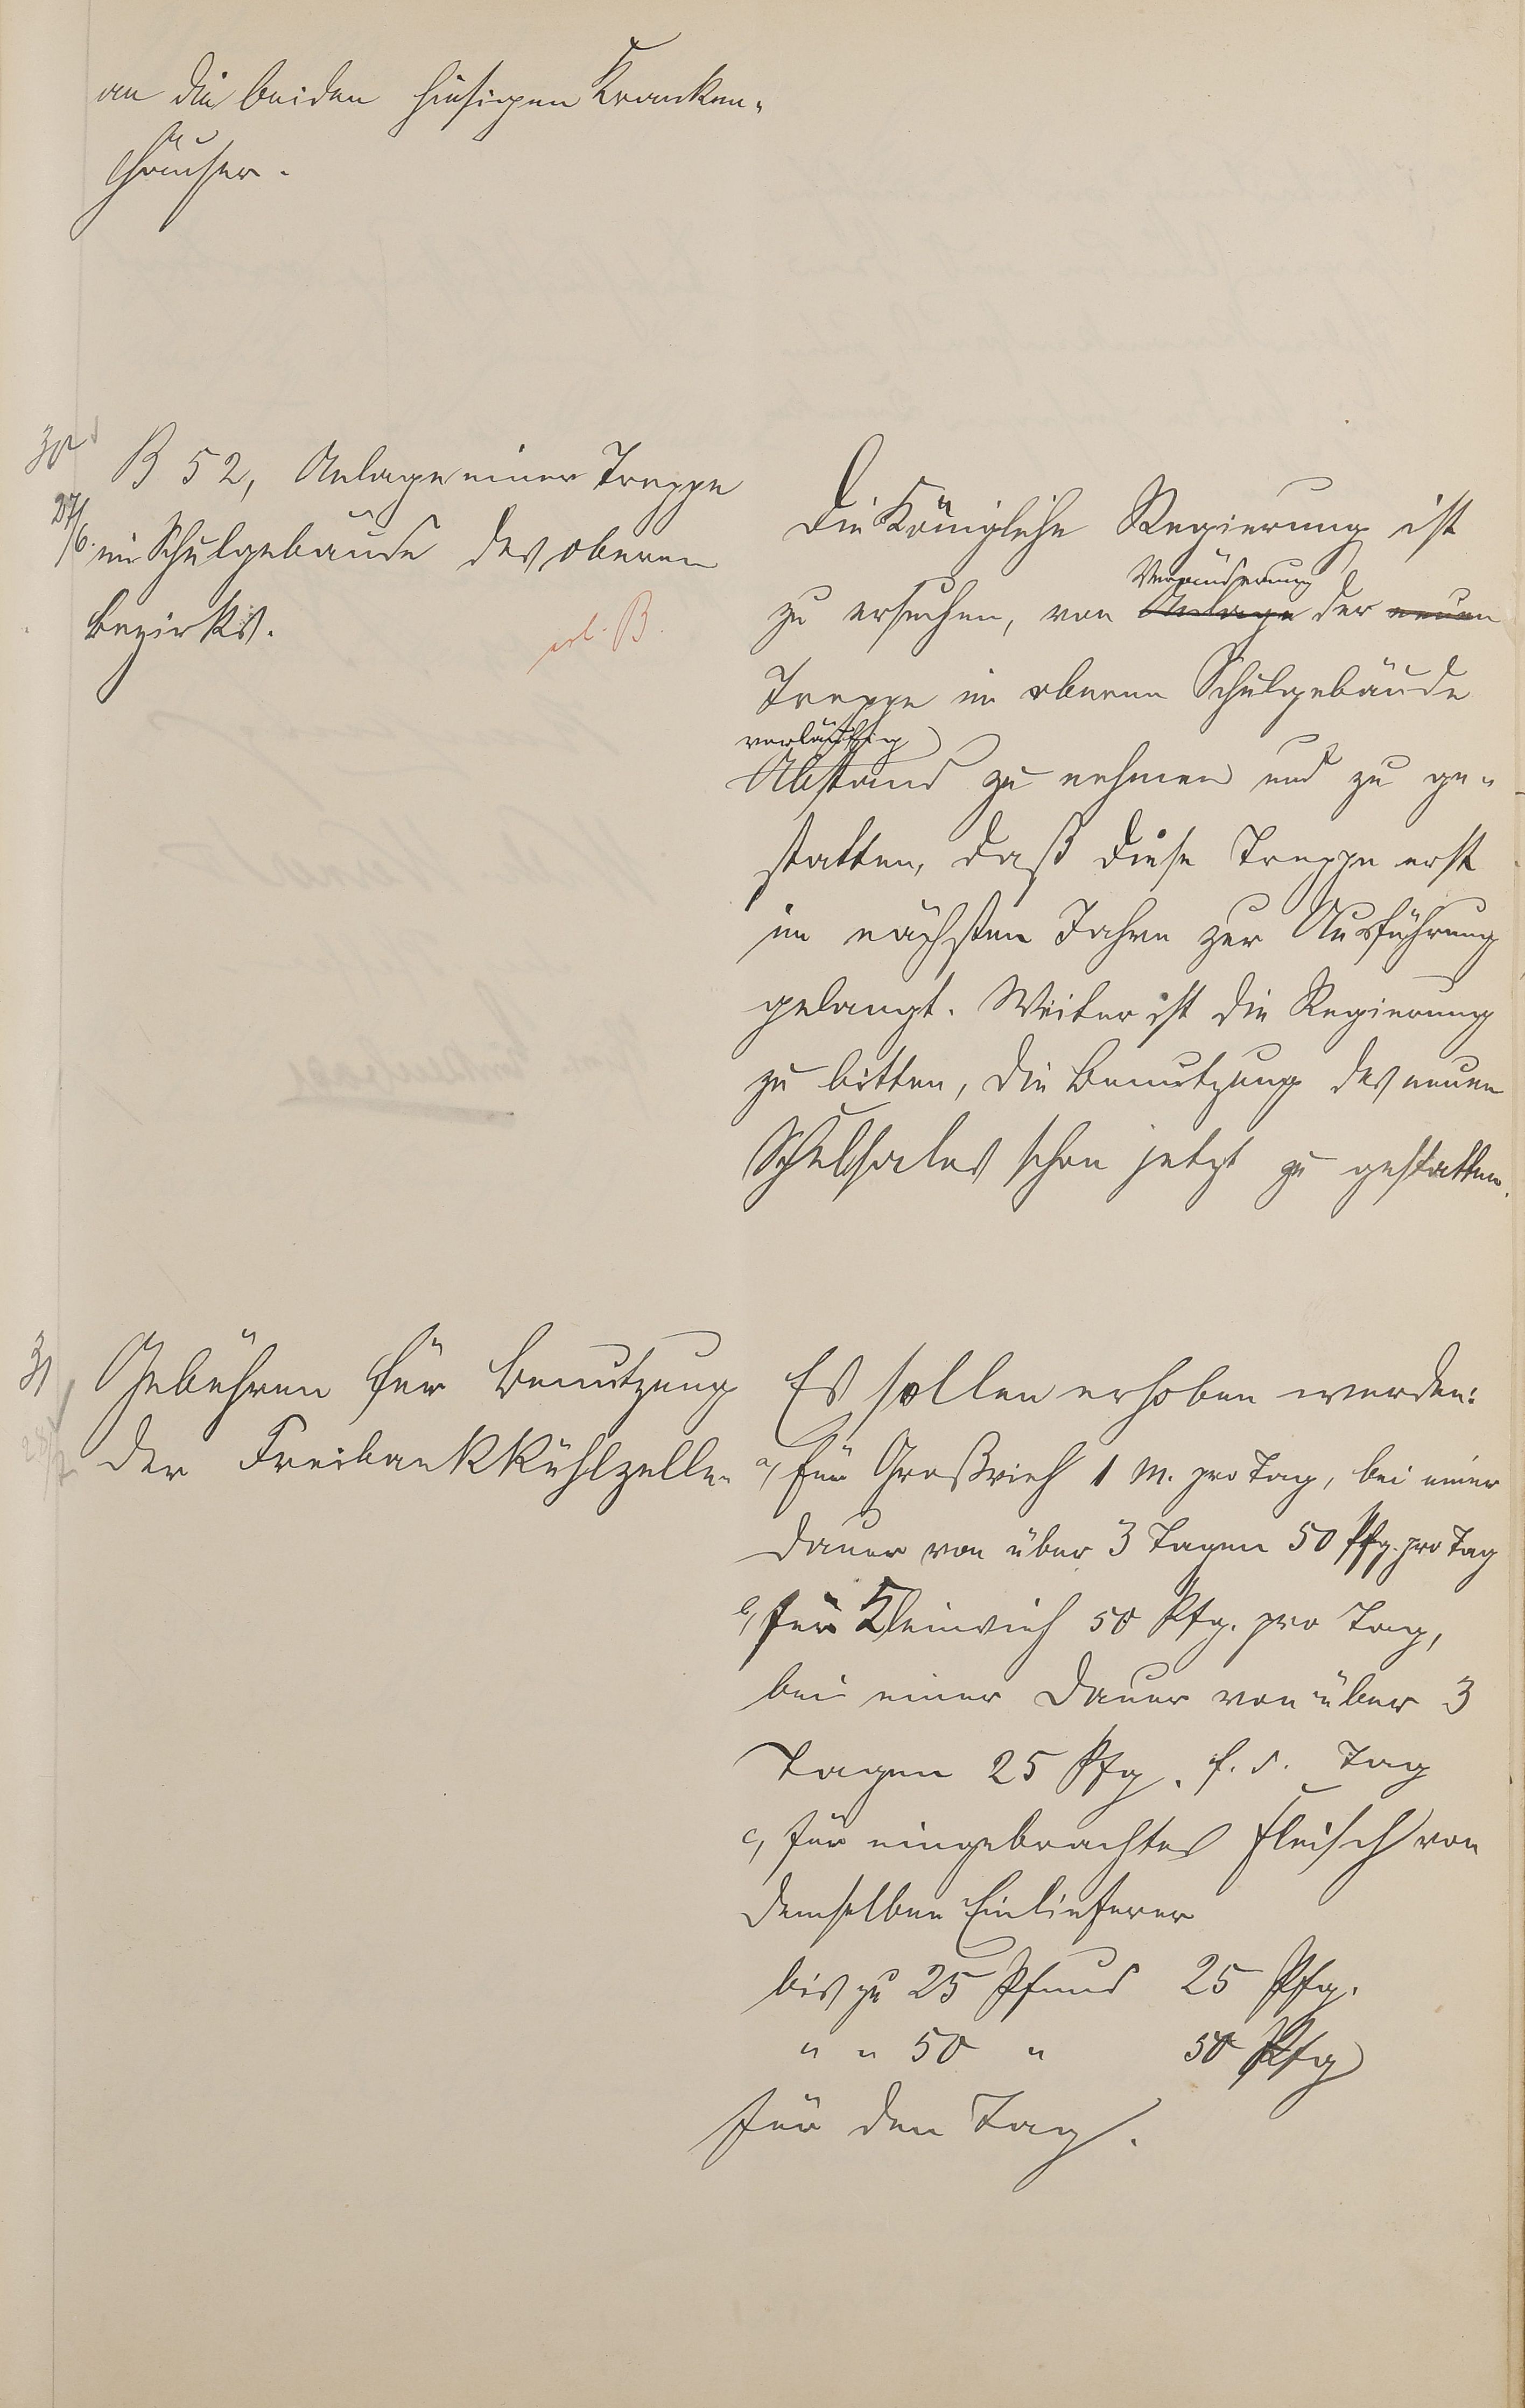 an die beiden hiesigen Kranken-
häuser.
30
B 52, Anlage einer Treppe
27/6.
im Schulgebäude des oberen
Bezirks.
erl. B.
Die Königliche Regierung ist
Veränderung
zu ersuchen, von Anlage der neuen
Treppe im oberen Schulgebäude
vorläufig
Abstand zu nehmen und zu ge-
statten, daß diese Treppe erst
im nächsten Jahre zur Ausführung
gelangt. Weiter ist die Regierung
zu bitten, die Benutzung des neuen
Schulsales schon jetzt zu gestatten.
31
Gebühren für Benutzung
der Freibankkühlzelle.
Es sollen erhoben werden:
a, für Großvieh 1 M. pro Tag, bei einer
Dauer von über 3 Tagen 50 Pfg. pro Tag
b, für Kleinvieh 50 Pfg. pro Tag,
bei einer Dauer von über 3
Tagen 25 Pfg. f. d. Tag
c, für eingebrachtes Fleisch von
demselben Einlieferer
bis zu 25 Pfund 25 Pfg.
" " 50 " 50 Pfg
für den Tag.